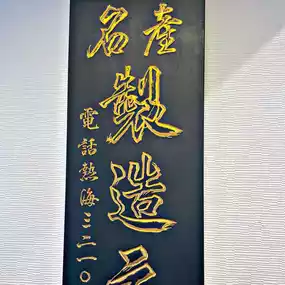 名産
製造元
電話熱海三二一〇